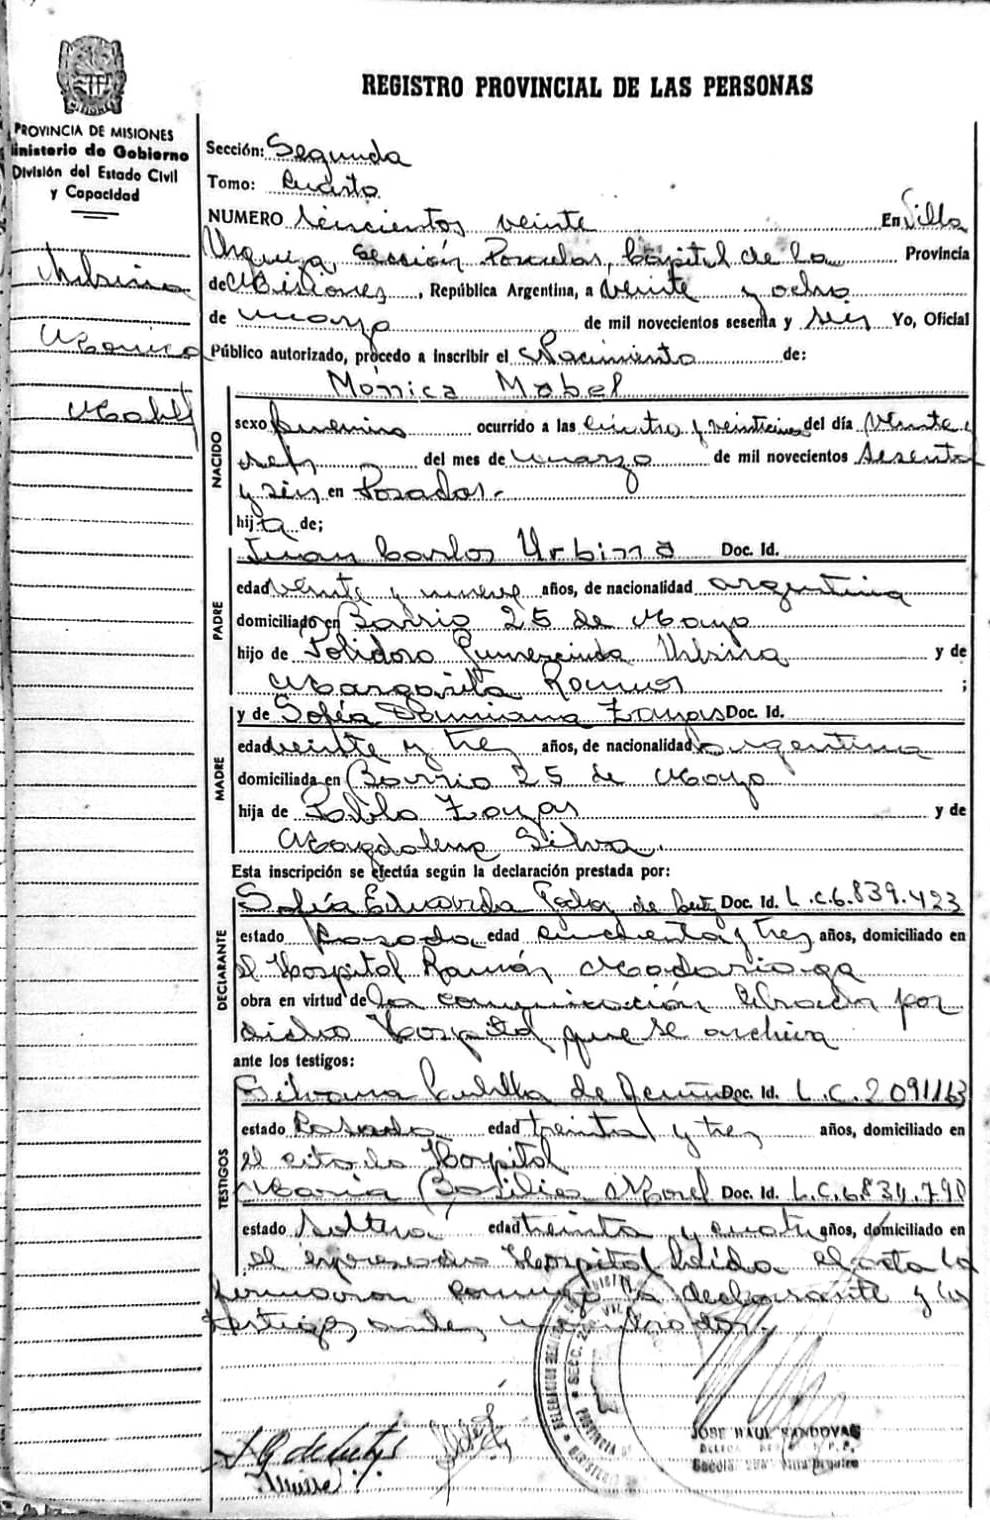 REGISTRO PROVINCIAL DE LAS PERSONAS
PROVINCIA DE MISIONES
Ministerio de Gobierno
División del Estado Civil
y Capacidad
Urbina
Monica
Mabel
Sección: Segunda
Tomo: Cuarto
NUMERO Seiscientos veinte En Villa
Urquiza, Sección Posadas, Capital de la Provincia
de Misiones, República Argentina, a veinte y ocho
de marzo de mil novecientos sesenta y seis Yo, Oficial
Público autorizado, procedo a inscribir el Nacimiento de:
NACIDO
Mónica Mabel
sexo femenino ocurrido a las cuatro y veinticinco del día veinte y
seis del mes de marzo de mil novecientos sesenta
y seis en Posadas.-
hija de;
PADRE
Juan Carlos Urbina Doc. Id.
edad veinte y nueve años, de nacionalidad argentina
domiciliado en Barrio 25 de Mayo
hijo de Polidoro Gumescindo Urbina y de
Margarita Ramos ;
MADRE
y de Sofía Damiana Zayas Doc. Id.
edad veinte y tres años, de nacionalidad argentina
domiciliada en Barrio 25 de Mayo
hija de Pablo Zayas y de
Magdalena Silva.
Esta inscripción se efectúa según la declaración prestada por:
DECLARANTE
Sofía Eduarda de Doc. Id. L.C.6.839.423
estado Casada edad cincuenta y tres años, domiciliado en
el Hospital Ramón Madariaga
obra en virtud de la comunicación librada por
dicho Hospital que se archiva
ante los testigos:
TESTIGOS
Silvana de Doc. Id. L.C.2091163
estado Casada edad treinta y tres años, domiciliado en
el citado Hospital
Maria Basilia Morel Doc. Id. L.C.6834.790
estado Soltera edad treinta y cuatro años, domiciliado en
el expresado Hospital Leída el acta la
firmaron conmigo la declarante y los
testigos
JOSE RAUL SANDOVAL